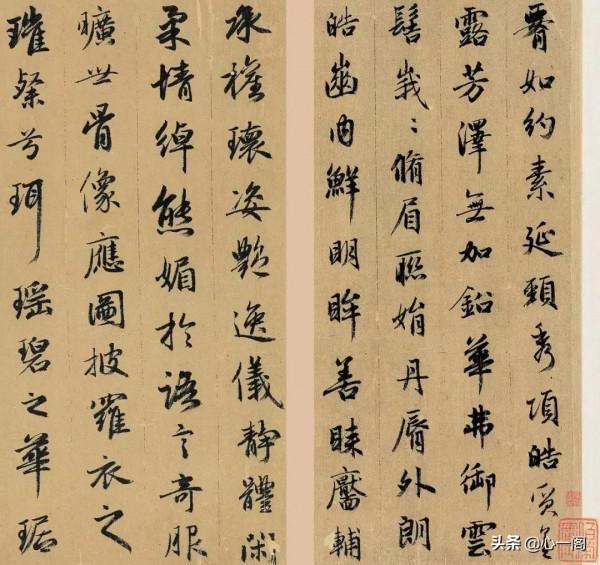 如約素延頸秀項皓質呈
露芳澤無加鉛華弗御雲
髻峩〻脩眉聯娟丹脣外朗
皓齒内鮮明眸善睞靨輔
承權瓌姿艷逸儀靜體閑
柔情綽態媚於語言奇服
曠世骨像應圖披羅衣之
璀粲兮珥瑶碧之華琚
头条 @心一阁